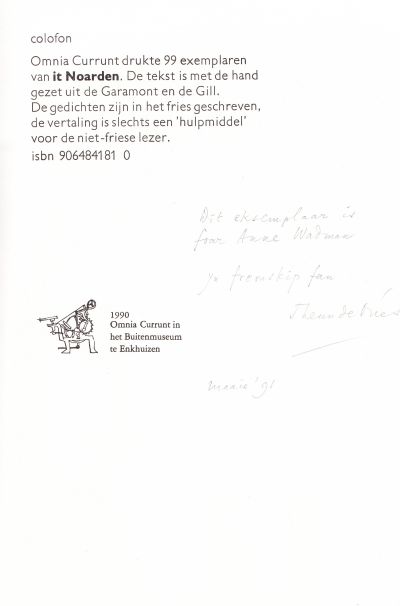 colofon
Omnia Currunt drukte 99 exemplaren
van it Noarden. De tekst is met de hand
gezet uit de Garamont en de Gill.
De gedichten zijn in het fries geschreven,
de vertaling is slechts een 'hulpmiddel'
voor de niet-friese lezer.
isbn 906484181 0
Dit eksemplaar is
foar Anne Wadman
yn freonskip fan
Theun de Vries
1990
Omnia Currunt in
het Buitenmuseum
te Enkhuizen
maaie '91